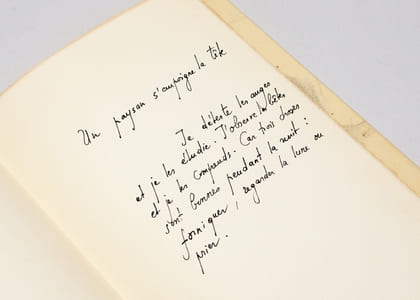 Un paysan s'empoigne la tête
Je déteste les anges
et je les étudie. J'observe les bêtes
et je les comprends. Car trois choses
sont bonnes pendant la nuit :
forniquer, regarder la lune ou
prier.